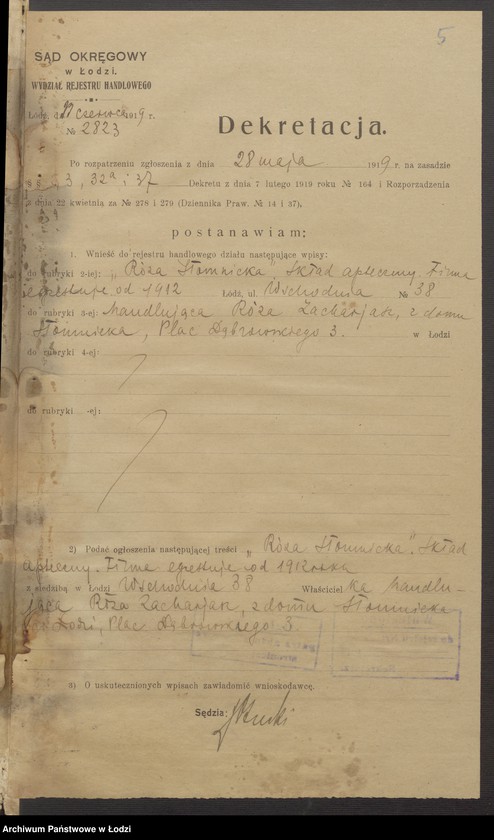 5
SĄD OKRĘGOWY
w Łodzi.
WYDZIAŁ REJESTRU HANDLOWEGO
Łódź, d. czerwca 1919 r.
№ 2823
Dekretacja.
Po rozpatrzeniu zgłoszenia z dnia 28 maja 1919 r. na zasadzie
3, 32a i 37 Dekretu z dnia 7 lutego 1919 roku № 164 i Rozporządzenia
z dnia 22 kwietnia za № 278 i 279 (Dziennika Praw. № 14 i 37),
postanawiam:
1. Wnieść do rejestru handlowego działu następujące wpisy:
do rubryki 2-iej: „Róża Słomnicka". Skład apteczny. Firma
egzystuje od 1912 Łódź, ul. Wschodnia № 38
do rubryki 3-ej: Handlująca Róża Zacharjasz, z domu
Słomnicka, Plac Dąbrowskiego 3. w Łodzi
do rubryki 4-ej:
do rubryki -ej:
2) Podać ogłoszenia następującej treści „Róża Słomnicka". Skład
apteczny. Firma egzystuje od 1912 roku
z siedzibą w Łodzi Wschodnia 38 Właściciel ka handlu-
jąca Róża Zacharjasz, z domu Słomnicka
w Łodzi, Plac Dąbrowskiego 3.
3) O uskutecznionych wpisach zawiadomić wnioskodawcę.
Sędzia:
Archiwum Państwowe w Łodzi